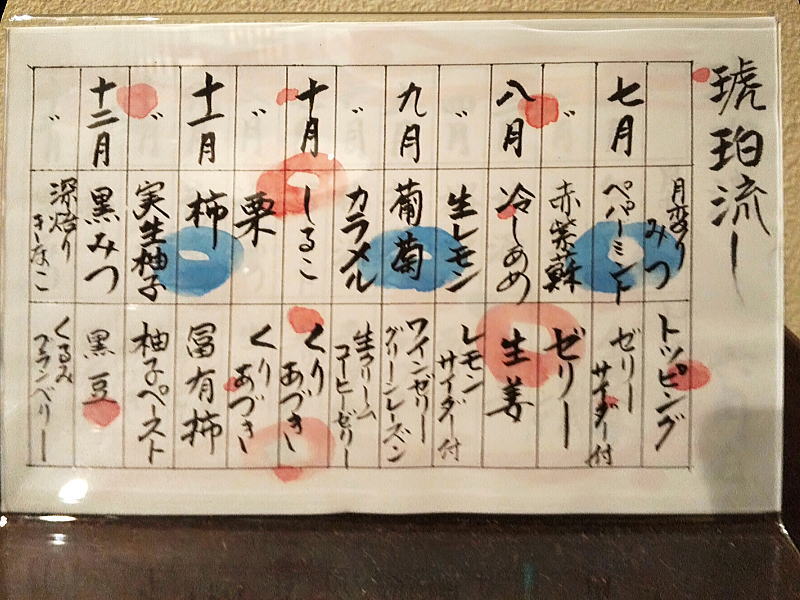 琥珀流し
月変り みつ トッピング
七月 ペパーミント ゼリー サイダー付
〃 赤紫蘇 ゼリー
八月 冷しあめ 生姜
〃 生レモン レモンサイダー付
九月 葡萄 ワインゼリー グリーンレーズン
〃 カラメル 生クリーム コーヒーゼリー
十月 しるこ くり あづき
〃 栗 くり あづき
十一月 柿 冨有柿
〃 実生柚子 柚子ペースト
十二月 黒みつ 黒豆
〃 深焙りきなこ くるみ クランベリー